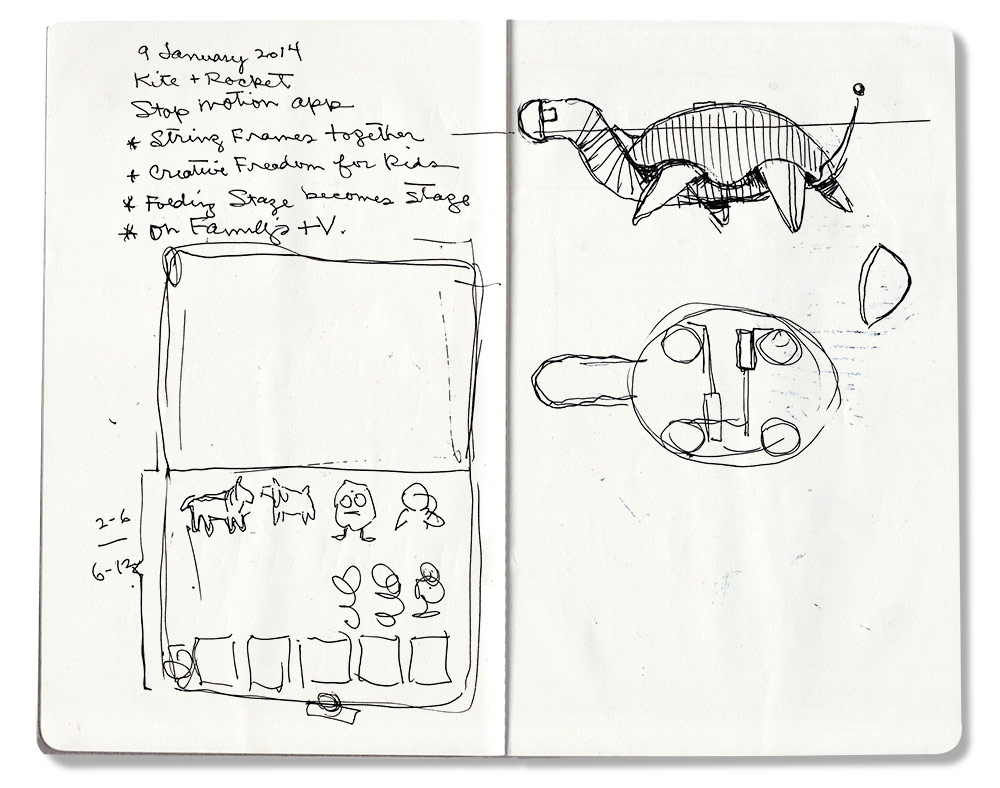 9 January 2014
Kite + Rocket
Stop motion app
* String Frames together
+ Creative Freedom for Kids
* Folding Stage becomes Stage
* on Family's TV.
2-6
6-12